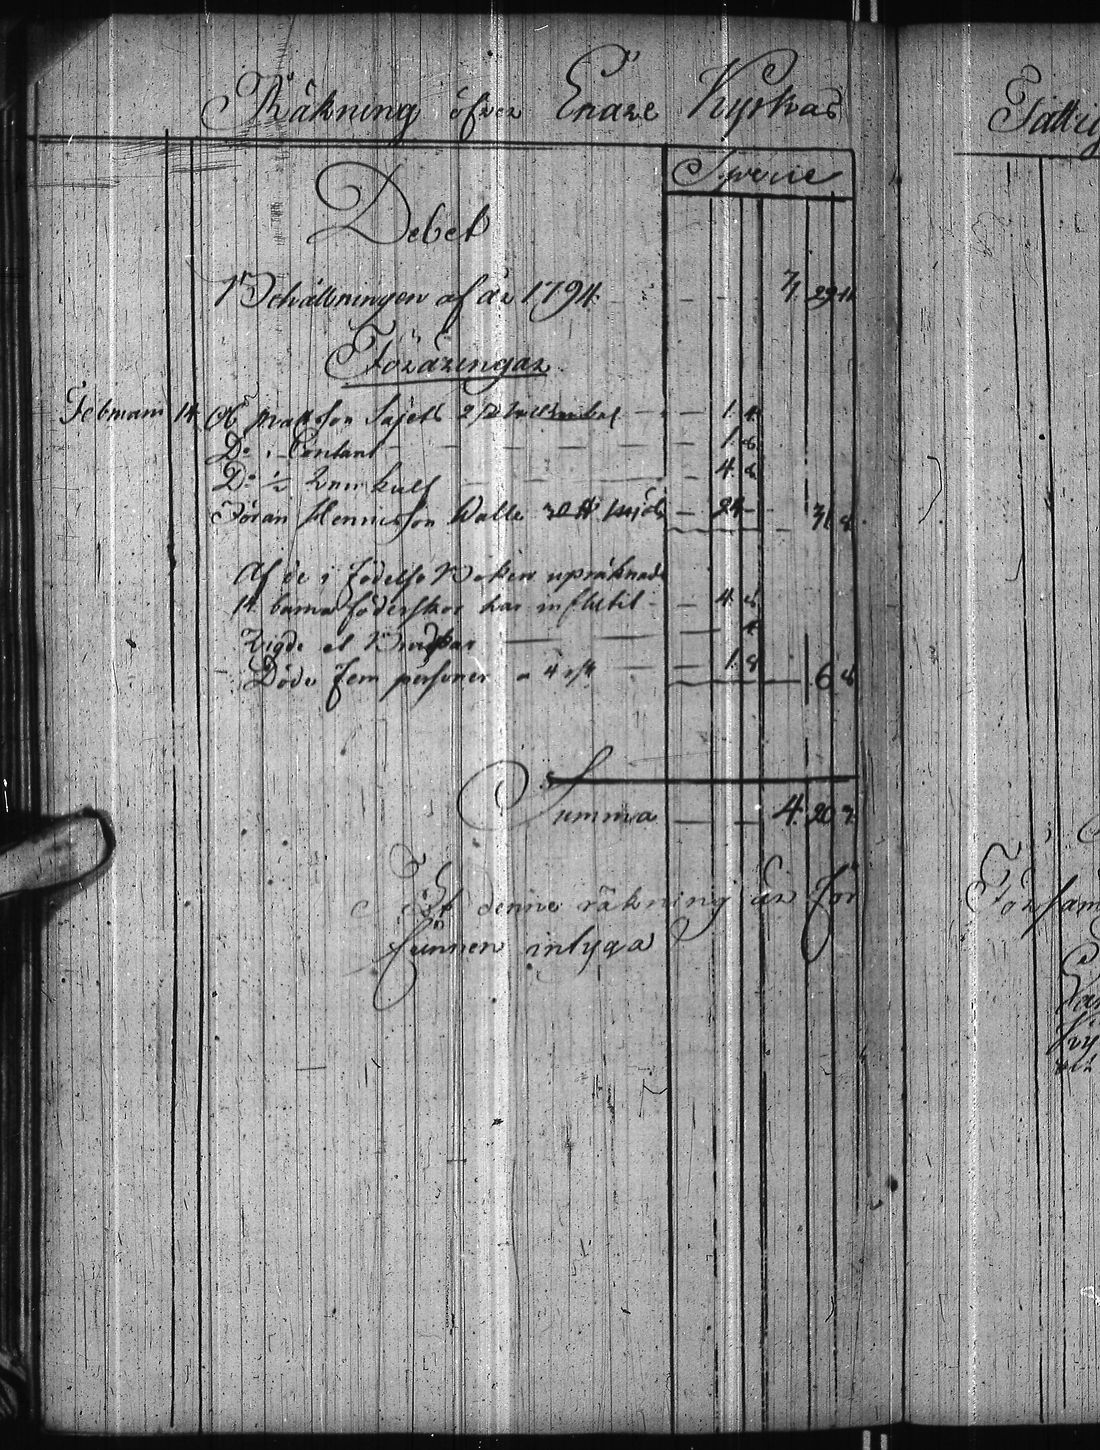 Räkning öfver Enare Kyrkas
Specie
Debet
Behållningen af år 1794. 3, 29 11
Föräringar
Februarii 14 Ol. Mattson Sajets 1. 4
Do i Contant 1. 8
Do ½ 4. 8
Jöran Hennisson Walle 24 - 31 8
Af de i födelse Boken upräknade
14 barna föderskor har influtit 4. 8
Vigde et Brudpar 4
Döde fem personer a 4 1. 8 6 8
Summa 4. 20 3
At denne räkning är för
funnen intyga
Fattig
Försam